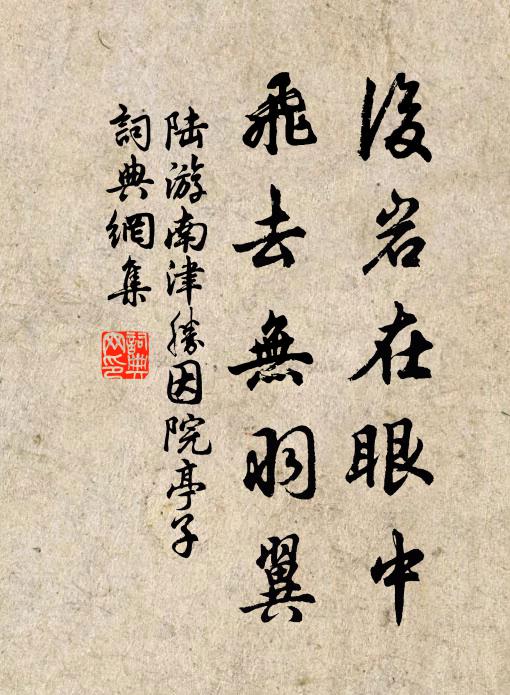 後岩在眼中
飛去無羽翼
陆游南津勝因院亭子
詞典網集
詞典网印